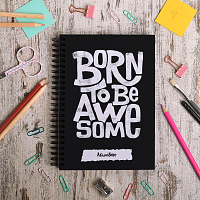 BORN
TO BE
AWE
SOME